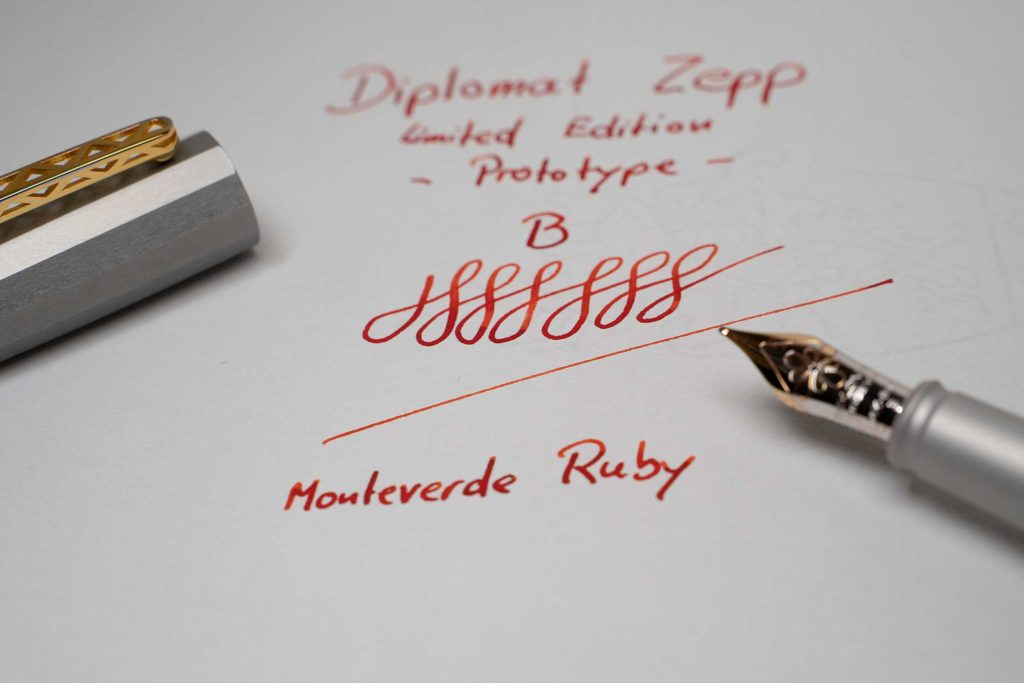 Diplomat Zepp
Limited Edition
- Prototype -
B
Monteverde Ruby